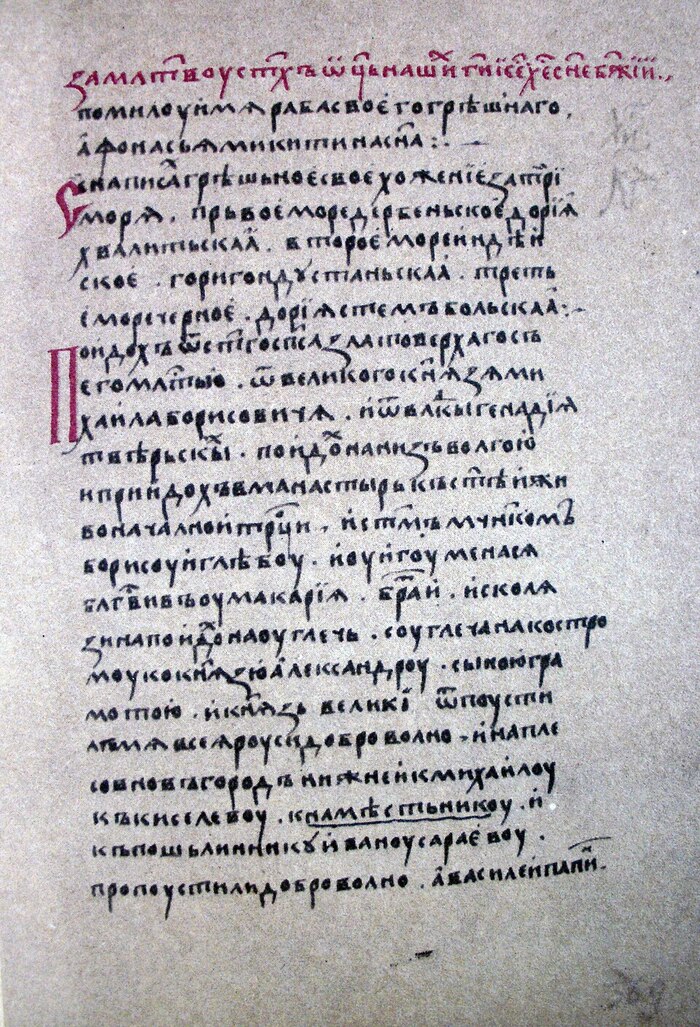 за млт҃въ ст҃хъ ѿц҃ь нашиⷯ ги҃ іс҃е хе҃ сн҃е бж҃їй.,
помилоуй мѧ раба своего грѣшнаго,
афонасьѧ микитина сн҃а :·
Се написаⷯ грѣшьное свое хоженїе за три
морѧ . прьвое море дербеньское дорїа
хвалитьскаа . второе море индѣи
ское . дориа гоундоустаньскаа . треть
е море черное . дорїа стембольскаа :·
Поидохъ ѿ ст҃го сп҃са златоверхаго съ
его млⷭ҇тью . ѿ великого кн҃ѧзѧ ми
хаила борисовичѧ . и ѿ влⷣкы генадїа
тверьскыⷯ . поидоⷯ на низъ волгою
и приидохъ в манастырь къ ст҃ѣй жи
воначалной трⷪ҇ци . и ст҃мъ мчн҃комъ
борисоу и глѣбоу . и оу игоумена сѧ
блгⷭ҇вивъ оу макарїа . браⷮи . и с колѧ
зина поидоⷯ на оуглечь . с оуглеча на костро
моу ко кнѧзю александроу . с ыною гра
мотою . и кнѧзь великїи ѿпоусти
лъ мѧ всеѧ роуси доброволно . и на пле
со в новъгородъ нижнеи к михаилоу
къ киселевоу . к намѣстьникоу . и
къ пошьлинникоу иваноу сараевоу .
пропоустили доброволно . а василеи папинⷩ .